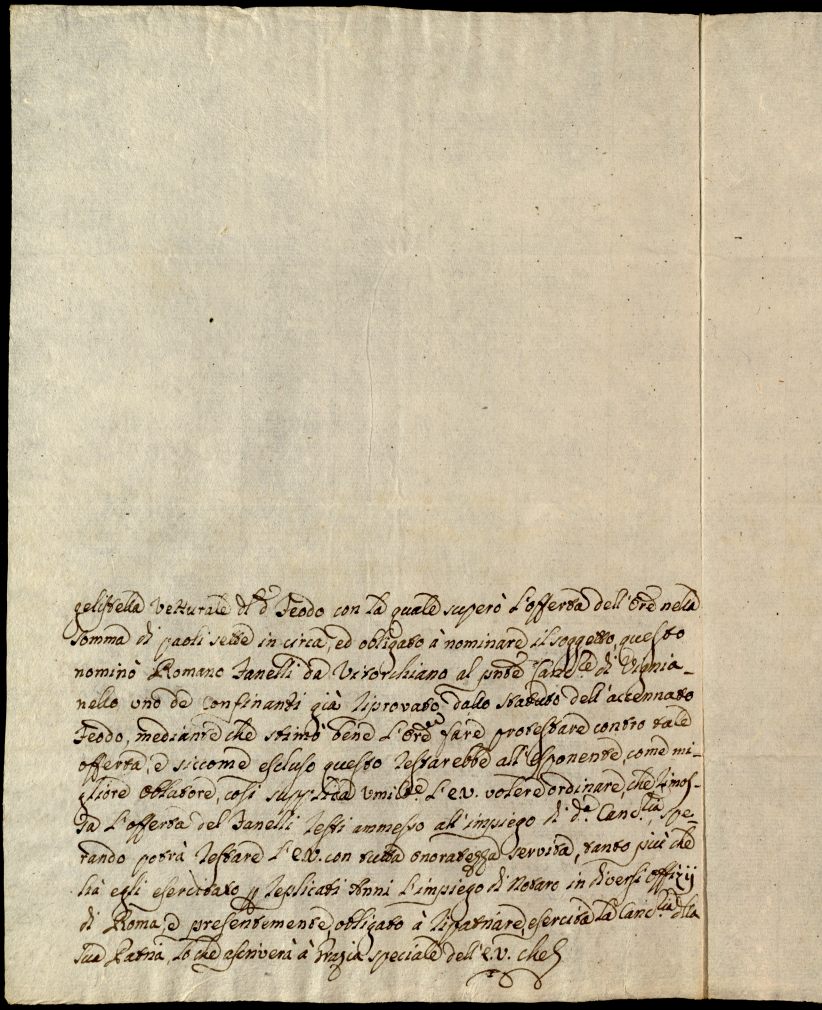 gelistella Vetturale di d.º Feodo con la quale superò l'offerta dell'Ore nella
somma di paoli sette in circa, ed obligato à nominare il soggetto, questo
nominò Romano Zanelli da Vitorchiano al pnte Canc.re di Vigna-
nello uno de Confinanti già riprovato dallo statuto dell'accennato
Feodo, mediante che stimò bene l'Ore fare protestare contro tale
offerta, e siccome escluso questo restarebbe all'Esponente, come mi-
gliore Oblatore, così supplica Umil.te l'E.V. volere ordinare, che rimos-
sa l'offerta del Zanelli resti ammesso all'impiego di d.a Canc.ria, spe-
rando potrà restare l'E.V. con tutta onoratezza servita, tanto più che
hà egli esercitato p replicati Anni l'impiego di Notaro in diversi Offizij
di Roma, e presentemente, obligato à ripatriare, esercita la Canc.ria dlla
sua Patria, lo che ascriverà à grazia speciale dell'E.V. che